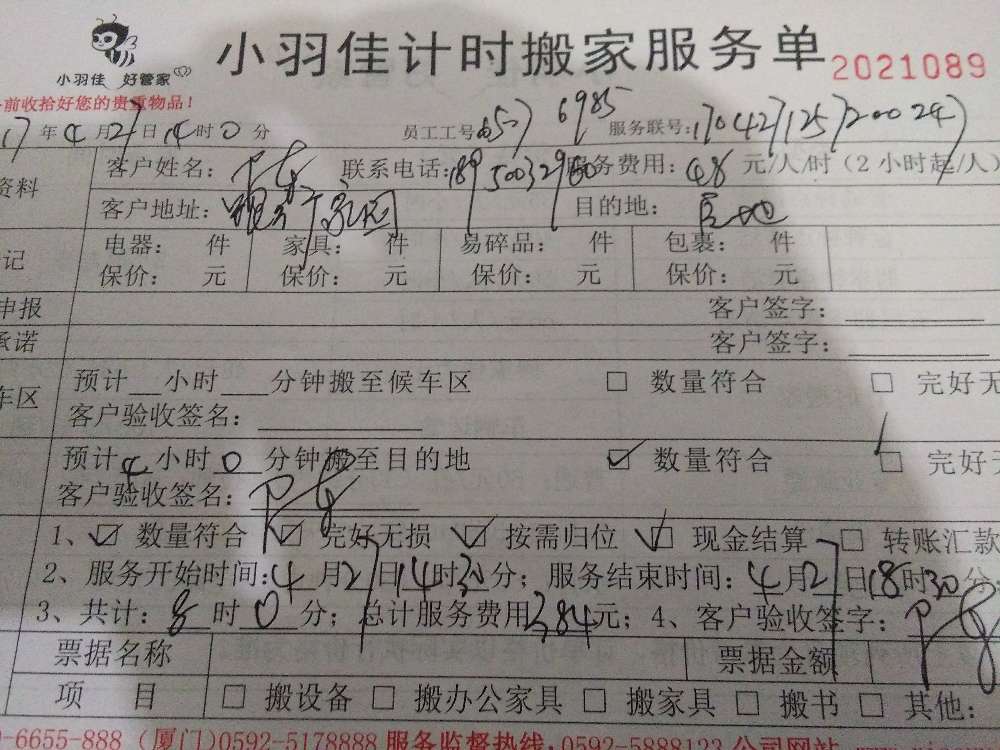 小羽佳计时搬家服务单 2021089
小羽佳 好管家
前收拾好您的贵重物品!
17年4月27日14时0分 员工工号: 6527 6985 服务联号: 170427125720024
资料 客户姓名: 联系电话: 服务费用: 48 元/人/时(2小时起/人)
客户地址: 家园 目的地:
记 电器: 件 家具: 件 易碎品: 件 包裹: 件
保价: 元 保价: 元 保价: 元 保价: 元
申报 客户签字:
承诺 客户签字:
车区 预计 小时 分钟搬至候车区 □ 数量符合 □ 完好无
客户验收签名:
预计4小时0分钟搬至目的地 ☑ 数量符合 ☑ 完好无
客户验收签名:
1、☑ 数量符合 ☑ 完好无损 ☑ 按需归位 ☑ 现金结算 □ 转账汇款
2、服务开始时间:4月27日14时30分;服务结束时间:4月27日18时30分
3、共计:8时0分;总计服务费用384元;4、客户验收签字:
票据名称 票据金额
项 目 □ 搬设备 □ 搬办公家具 □ 搬家具 □ 搬书 □ 其他:
-6655-888 (厦门)0592-5178888 服务监督热线:0592-5888123 公司网站